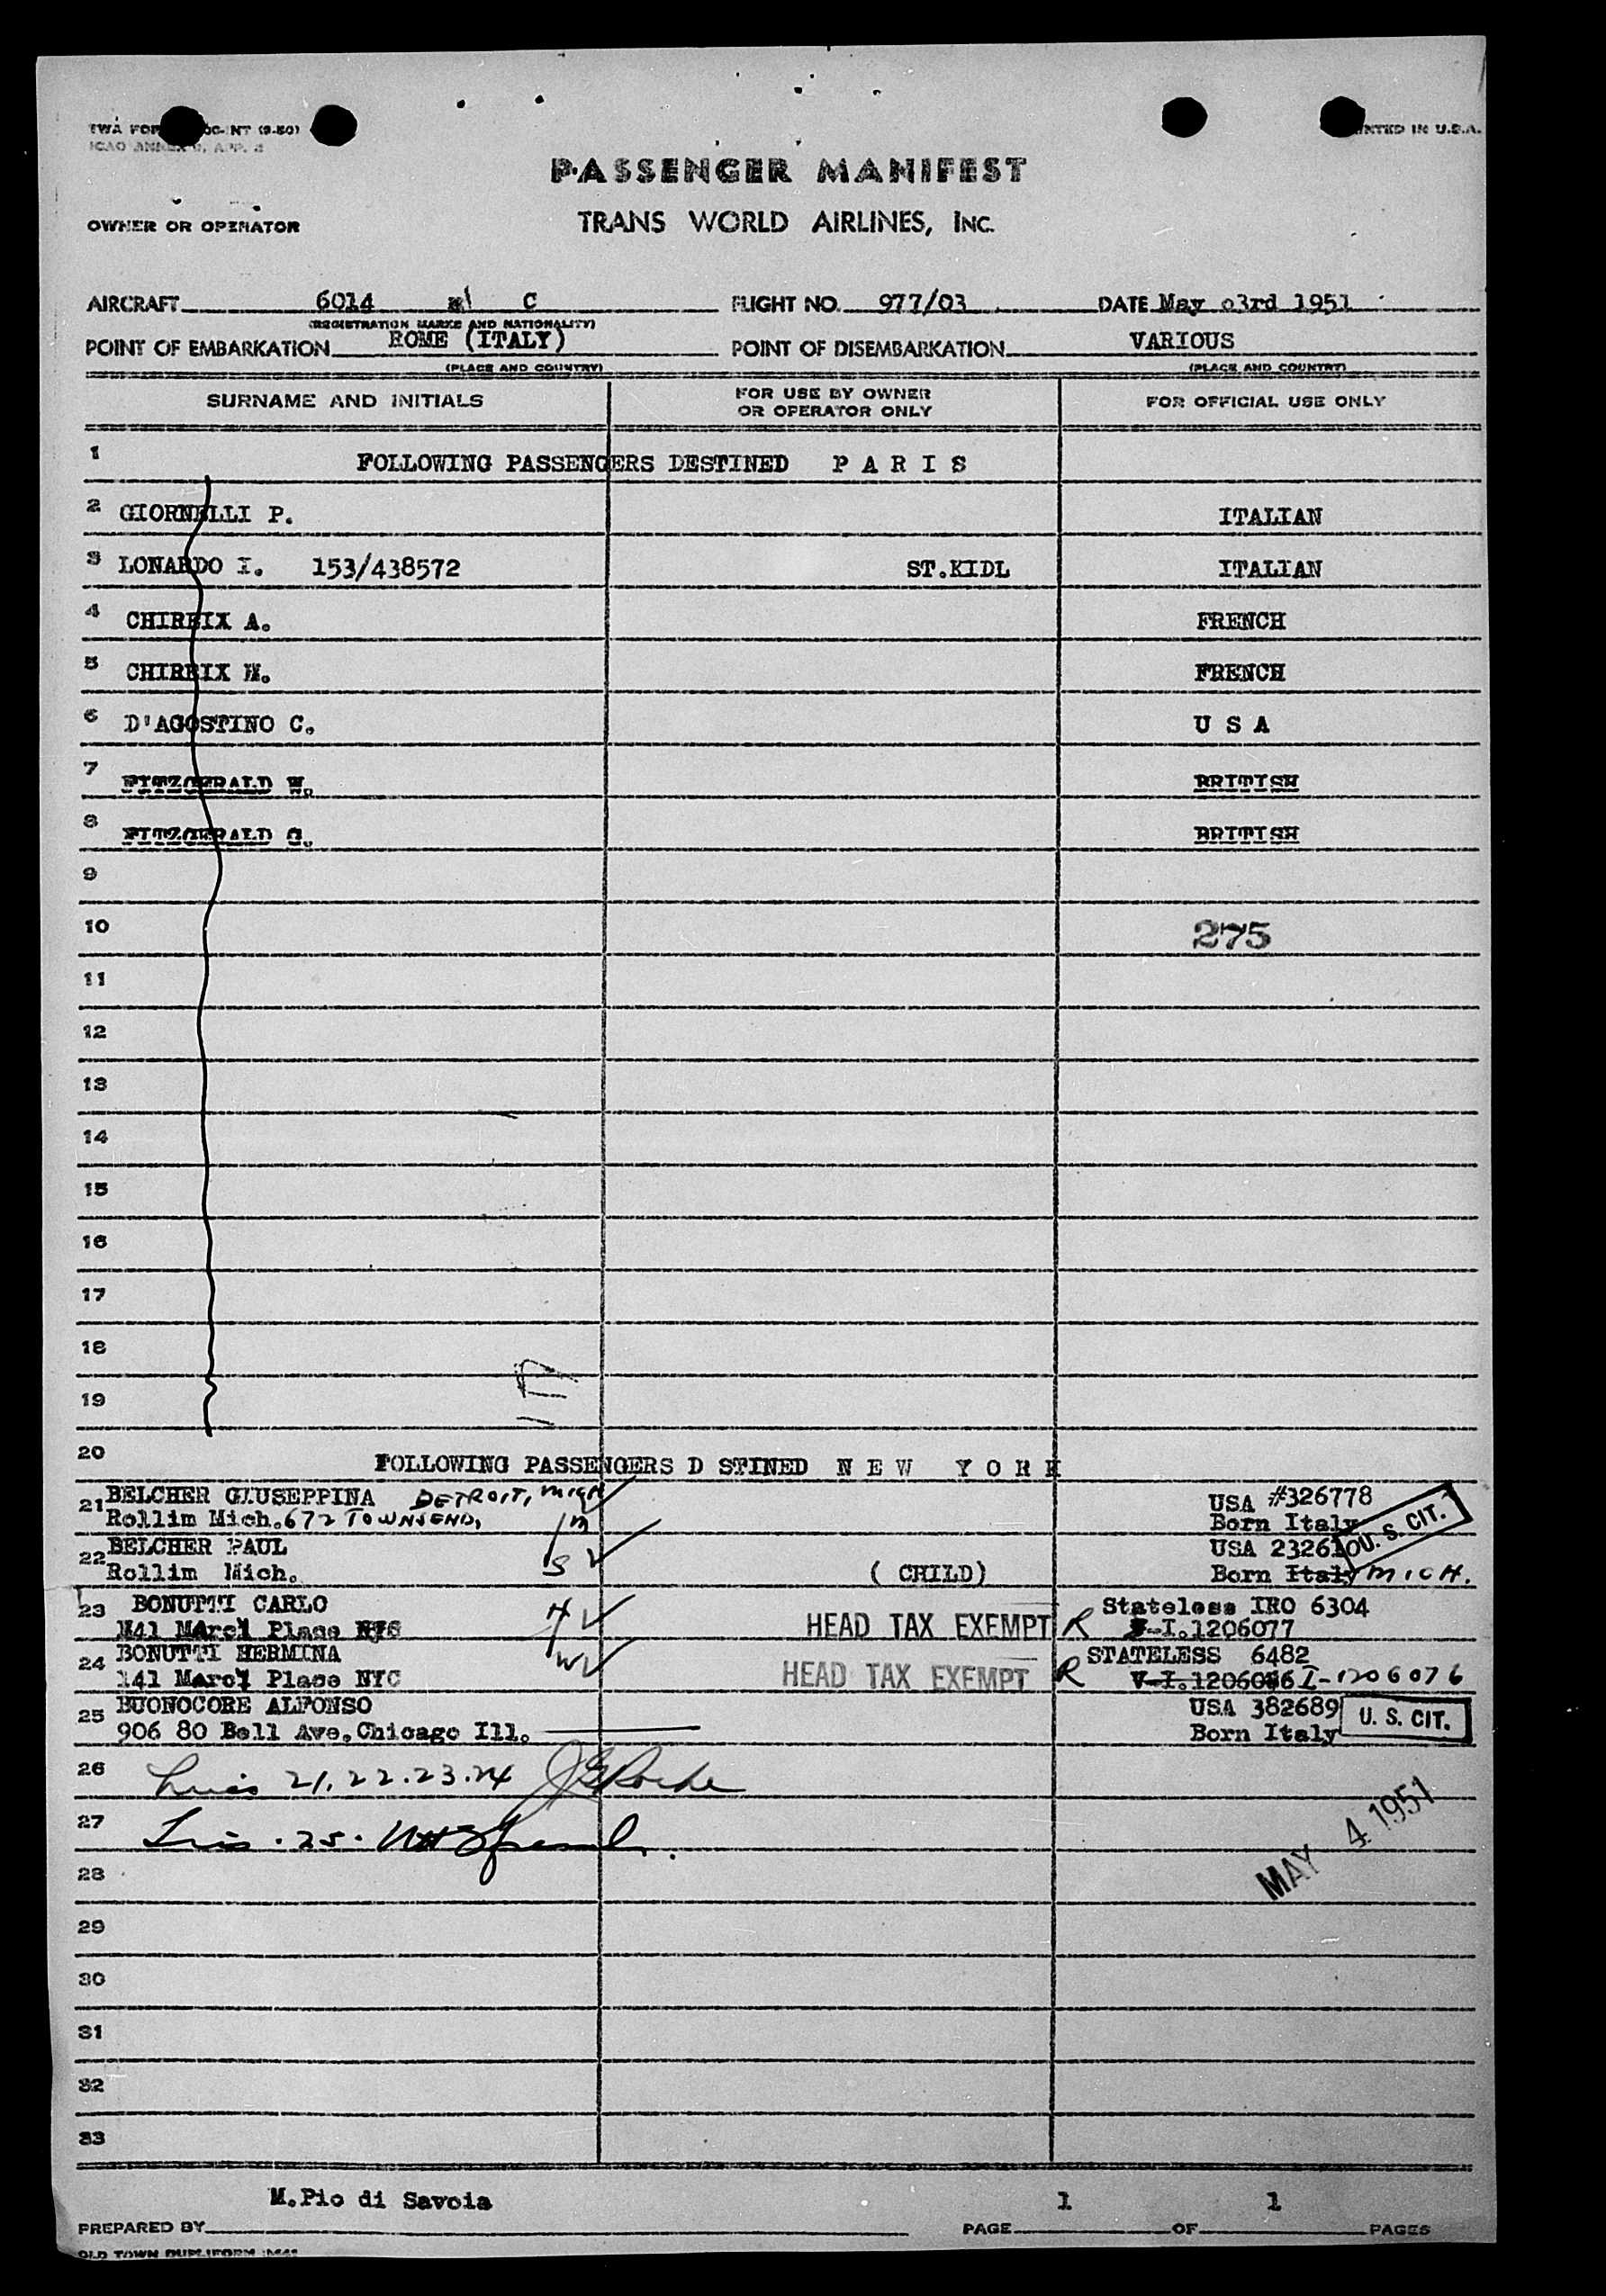 PRINTED IN U.S.A.
PASSENGER MANIFEST
OWNER OR OPERATOR TRANS WORLD AIRLINES, INC.
AIRCRAFT 6014 C FLIGHT NO. 977/03 DATE May 03rd 1951
(REGISTRATION MARKS AND NATIONALITY)
POINT OF EMBARKATION ROME (ITALY) POINT OF DISEMBARKATION VARIOUS
(PLACE AND COUNTRY) (PLACE AND COUNTRY)
SURNAME AND INITIALS FOR USE BY OWNER OR OPERATOR ONLY FOR OFFICIAL USE ONLY
1 FOLLOWING PASSENGERS DESTINED P A R I S
2 GIORNELLI P. ITALIAN
3 LONARDO I. 153/438572 ST.KIDL ITALIAN
4 CHIREIX A. FRENCH
5 CHIREIX H. FRENCH
6 D'AGOSTINO C. U S A
7 FITZGERALD W. BRITISH
8 FITZGERALD G. BRITISH
9
10 275
11
12
13
14
15
16
17
18
19
20 FOLLOWING PASSENGERS D STINED N E W Y O R K
21 BELCHER GIUSEPPINA DETROIT, MICH USA #326778
Rollim Mich. 672 TOWNSEND, M Born Italy U. S. CIT.
22 BELCHER PAUL USA 232610
Rollim Mich. S ( CHILD) Born Italy MICH.
23 BONUTTI CARLO H Stateless IRO 6304
141 Marcy Place NYC HEAD TAX EXEMPT R I.1206077
24 BONUTTI HERMINA W STATELESS 6482
141 Marcy Place NYC HEAD TAX EXEMPT R V-I.1206046 I-1206076
25 BUONOCORE ALFONSO USA 382689
906 80 Bell Ave.Chicago Ill. Born Italy U. S. CIT.
26 21.22.23.24
27 25.
MAY 4 1951
28
29
30
31
32
33
PREPARED BY M.Pio di Savoia PAGE 1 OF 1 PAGES